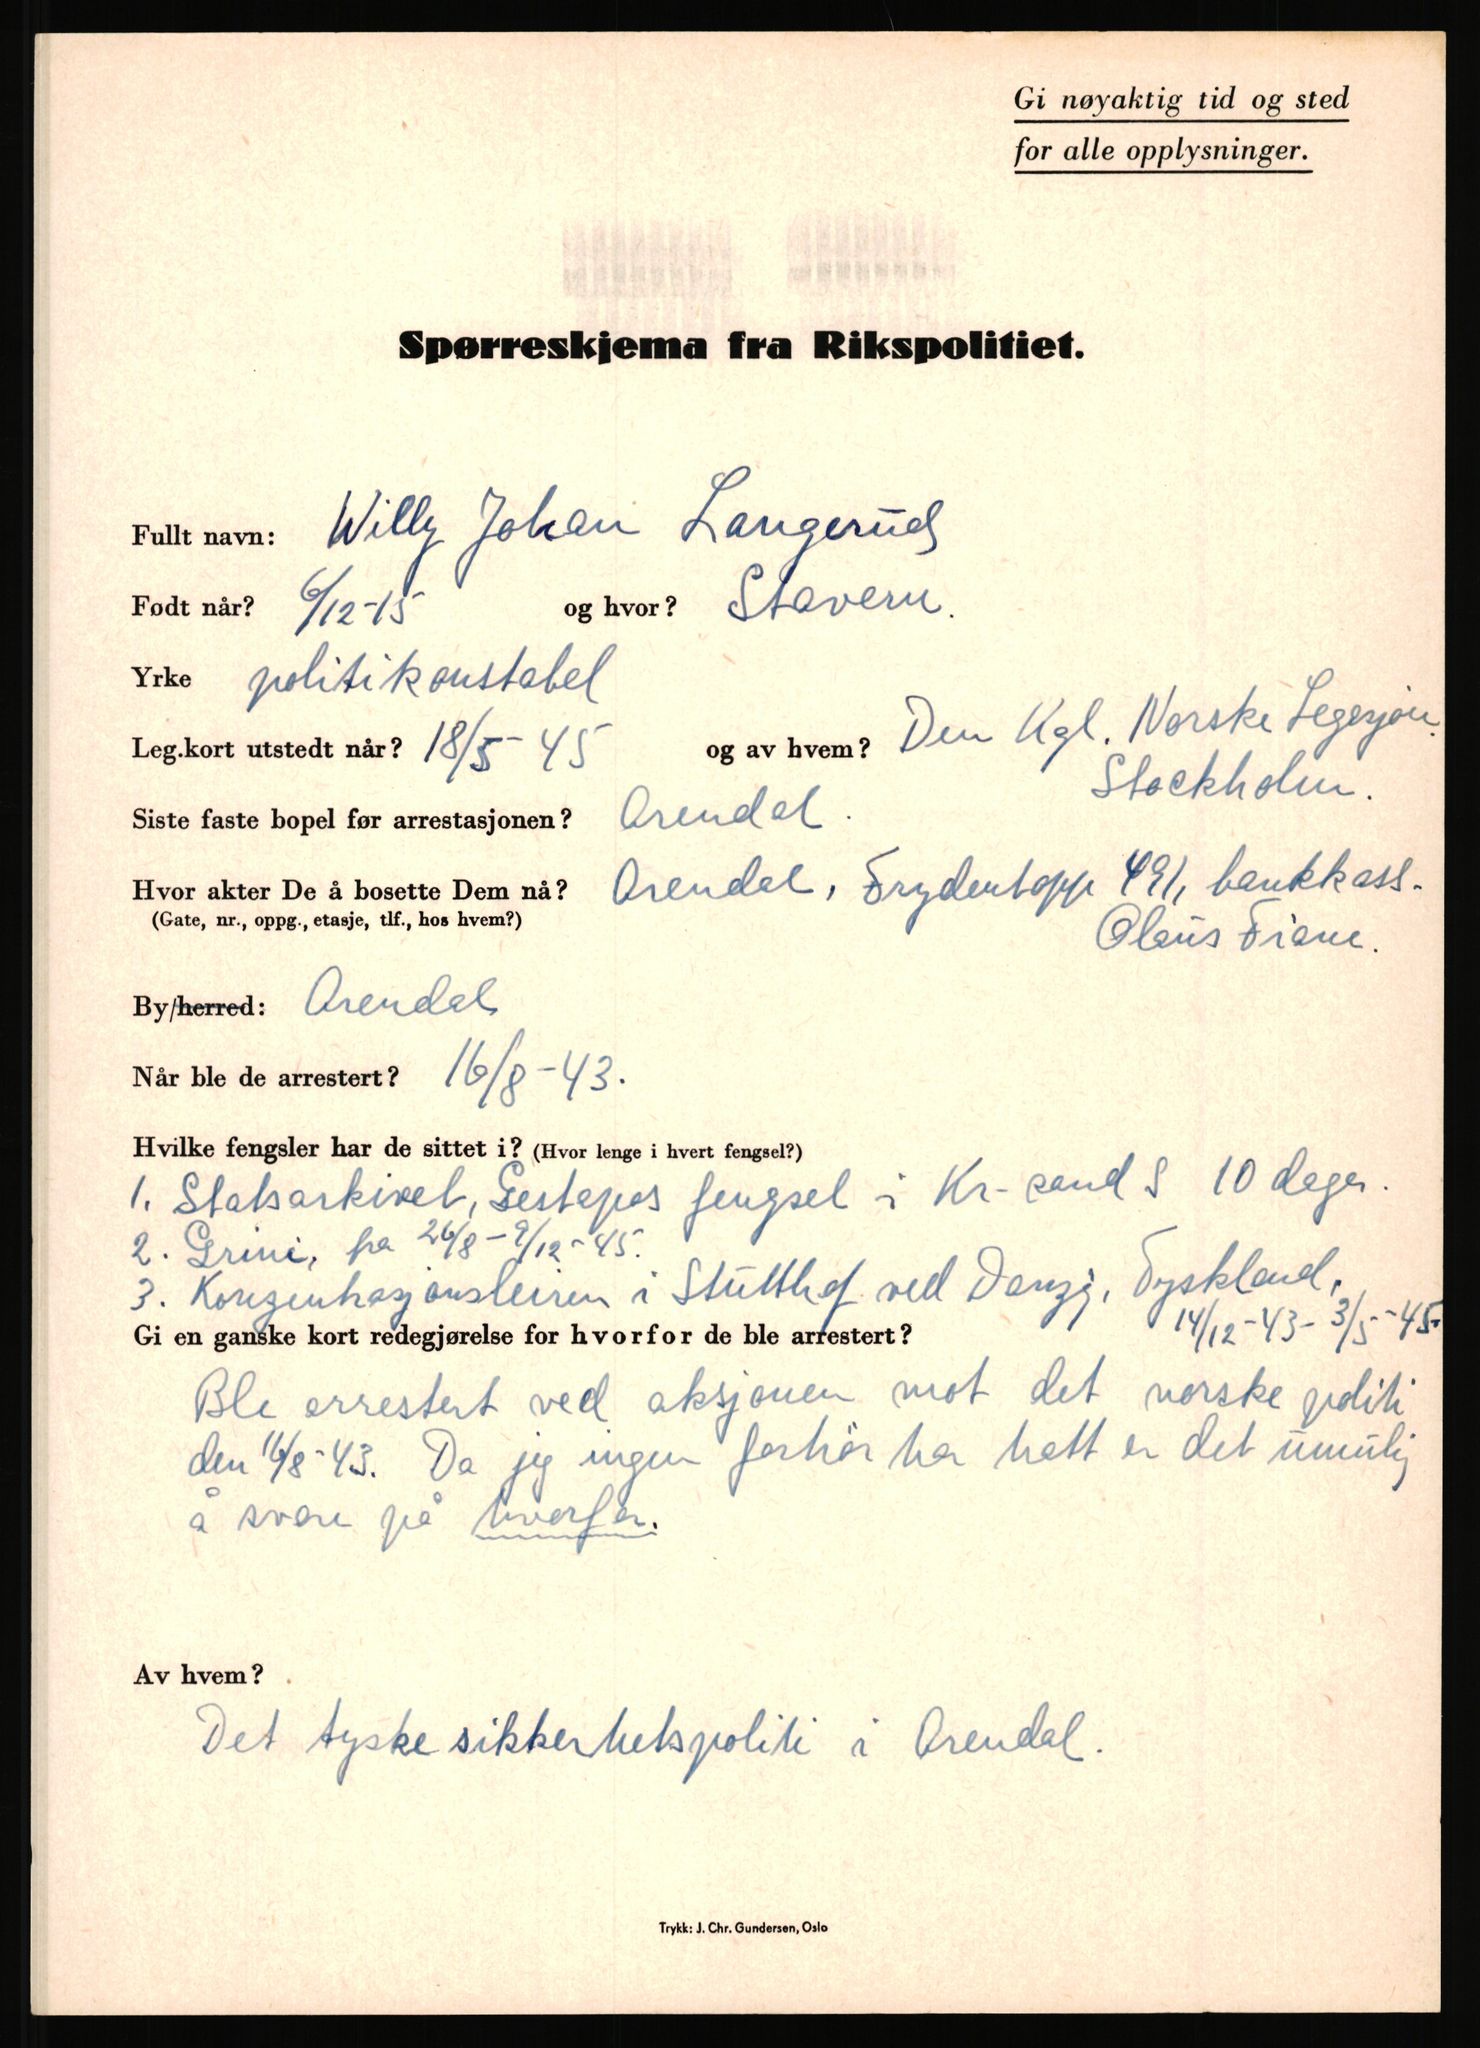 Gi nøyaktig tid og sted
for alle opplysninger.
Spørreskjema fra Rikspolitiet.
Fullt navn: Willy Johan Langerud
Født når? 6/12-15 og hvor? Stavern.
Yrke politikonstabel
Leg.kort utstedt når? 18/5-45 og av hvem? Den Kgl. Norske Legasjon.
Stockholm.
Siste faste bopel før arrestasjonen? Arendal.
Hvor akter De å bosette Dem nå? Arendal, Frydentopp 491, bankkass.
(Gate, nr., oppg., etasje, tlf., hos hvem?) Olaus Fiane.
By/herred: Arendal
Når ble de arrestert? 16/8-43.
Hvilke fengsler har de sittet i? (Hvor lenge i hvert fengsel?)
1. Statsarkivet, Gestapos fengsel i Kr-sand S 10 dager.
2. Grini, fra 26/8-9/12-45.
3. Konzentrasjonsleiren i Stutthof ved Danzig, Tyskland,
14/12-43- 3/5-45.
Gi en ganske kort redegjørelse for hvorfor de ble arrestert?
Ble arrestert ved aksjonen mot det norske politi
den 16/8-43. Da jeg ingen forhör har hatt er det umulig
å svare på hvorfor.
Av hvem?
Det tyske sikkerhetspoliti i Arendal.
Trykk: J. Chr. Gundersen, Oslo